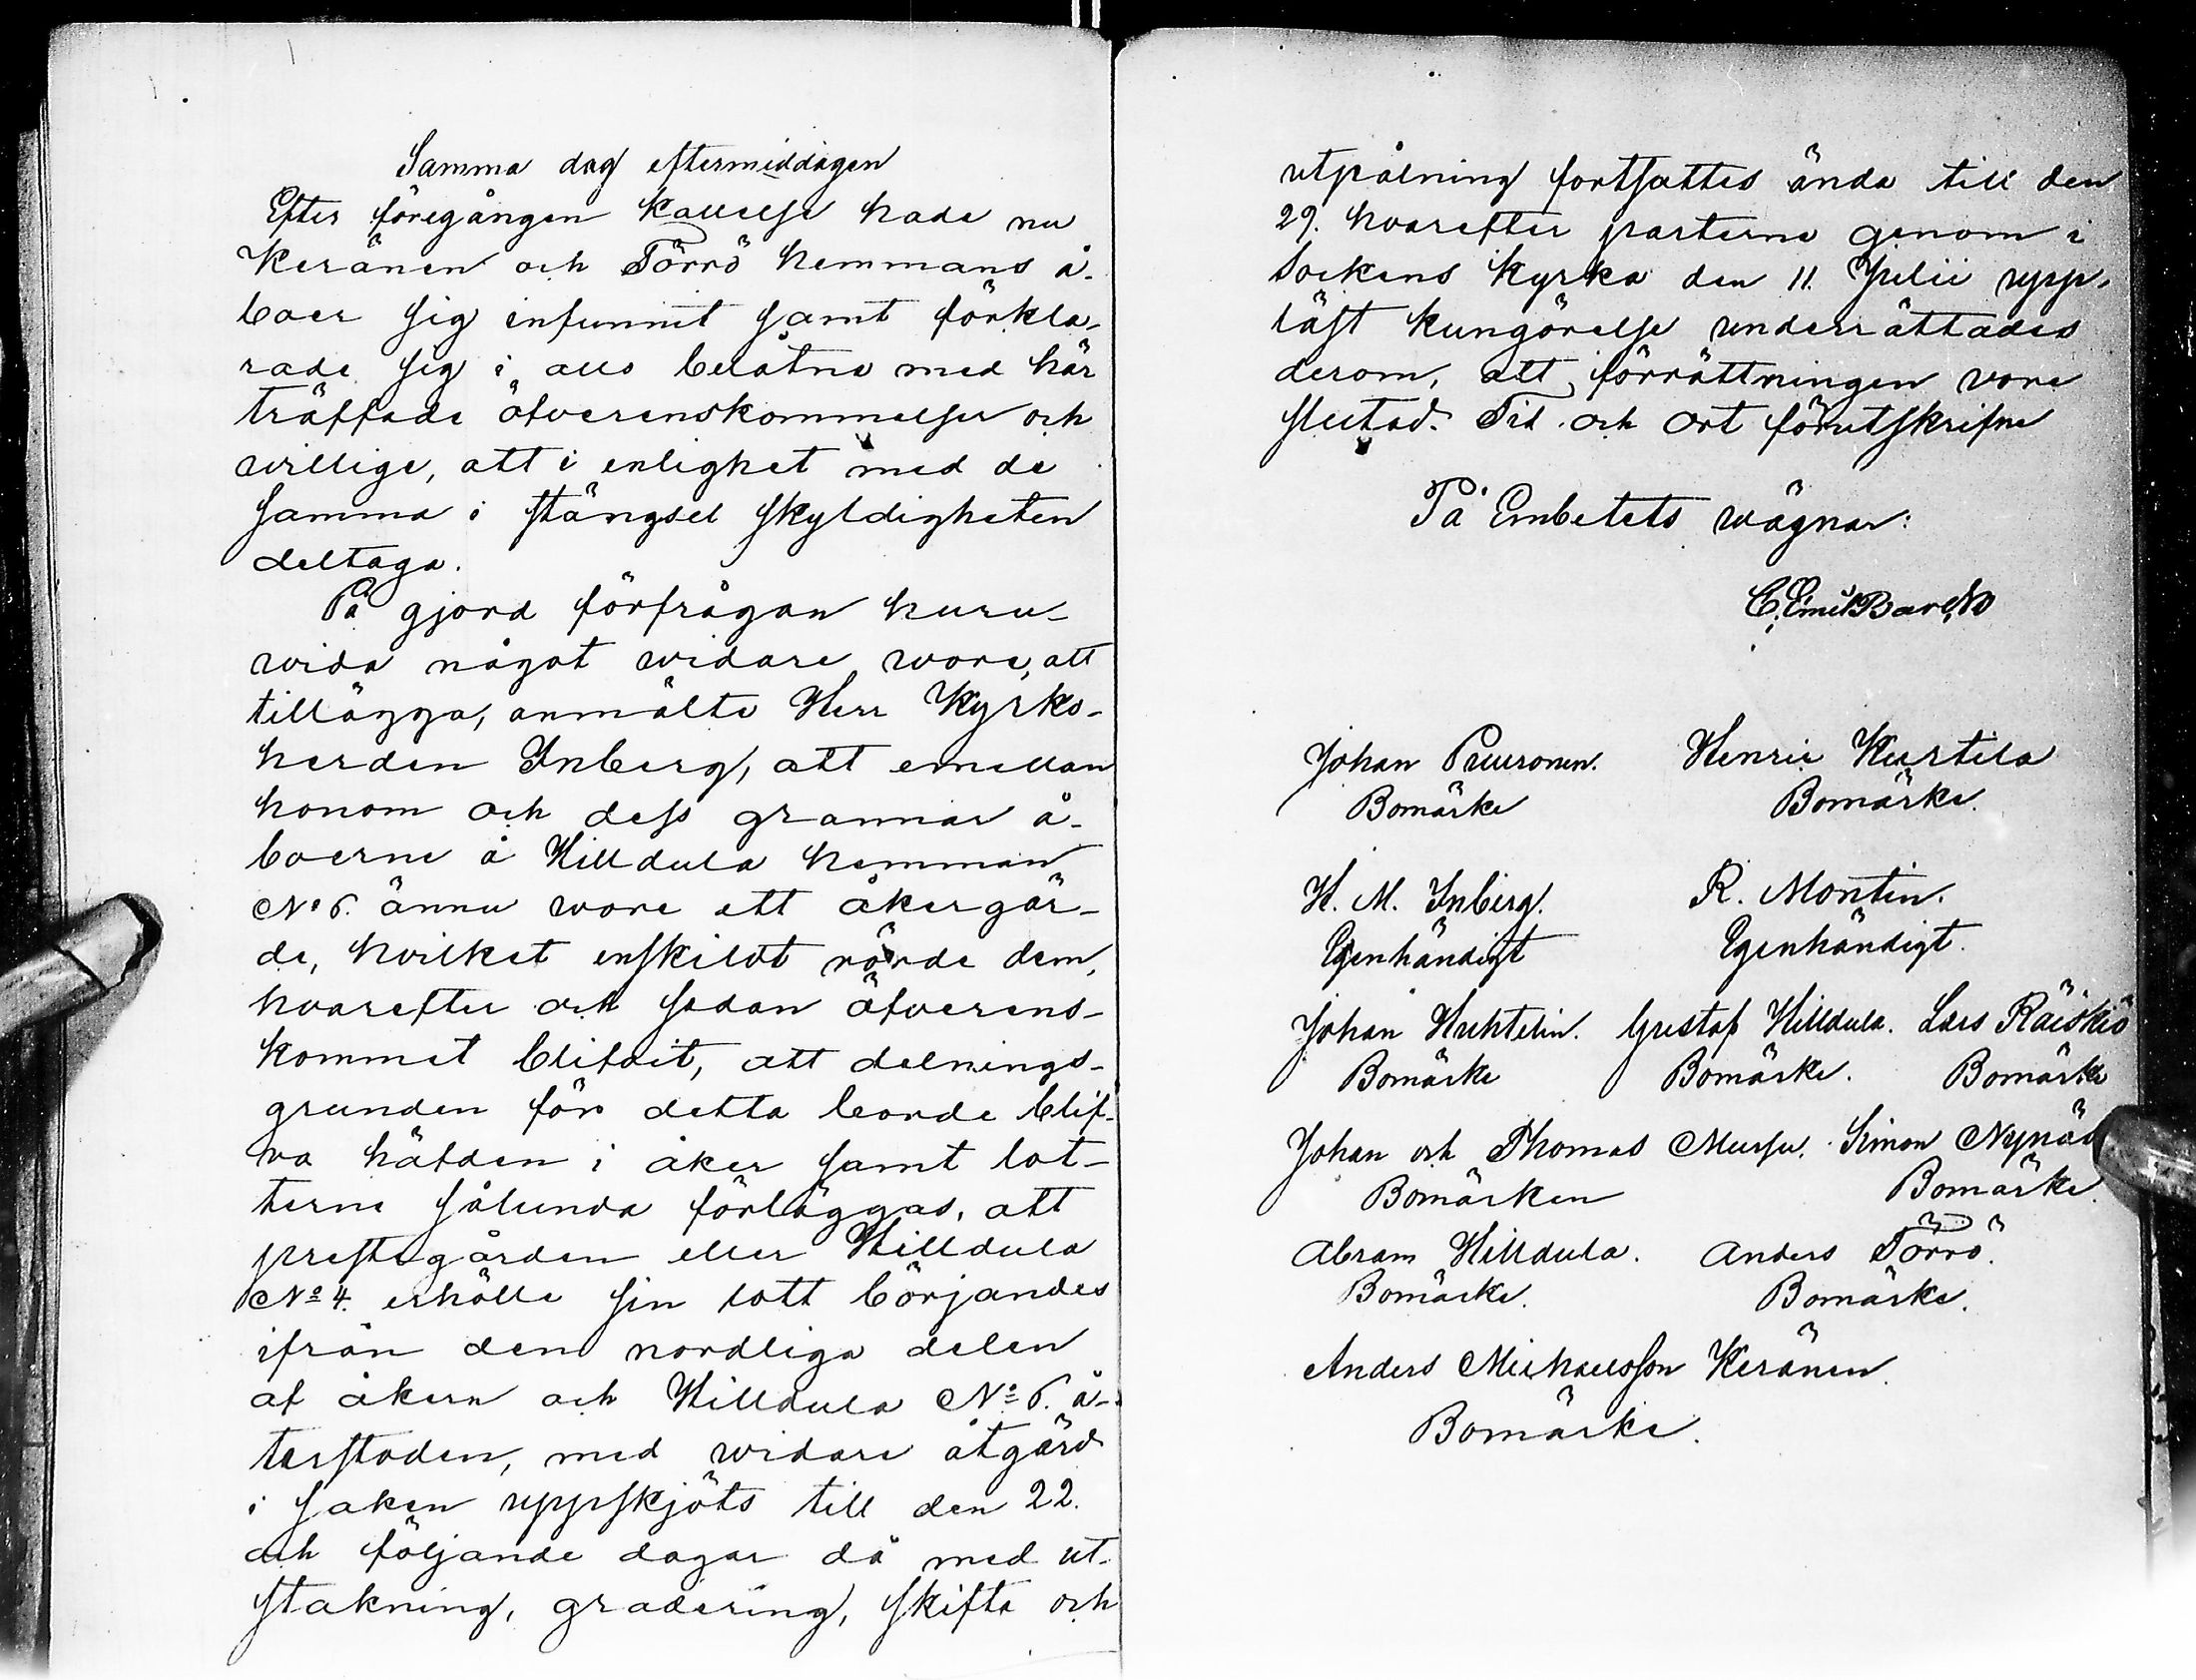 Samma dag eftermiddagen
Efter föregången kallelse hade nu
Keränen och Törrö hemmans å-
boer sig infunnit samt förkla-
rade sig i allo belåtna med här
träffade öfverenskommelser och
willige, att i enlighet med de
samma i stängsel skyldigheten
deltaga.
På gjord förfrågan huru-
wida något widare wore, att
tillägga, anmälte Herr Kyrko-
herden Inberg, att emellan
honom och dess grannar å-
boerne å Hilldula hemman
No 6. ännu wore ett åkergär-
de, hvilket enskildt rörde dem,
hvarefter och sådan öfverens-
kommet blifvit, att delnings-
grunden för detta borde blif-
va häfden i åker samt lot-
terne sålunda förläggas, att
prestegården eller Hilldula
No 4. erhölle sin lott börjandes
ifrån den nordliga delen
af åkern och Hilldula No 6. å-
terstoden, med widare åtgärd
i saken uppskjöts till den 22.
och följande dagar då med ut-
stakning, gradering, skifte och
utpålning fortsattes ända till den
29. hvarefter parterne genom i
Sockens kyrka den 11. Julii upp-
läst kungörelse underrättades
derom, att förrättningen vore
slutad. Tid och ort förutskrifne
På Embetets wägnar:
C. Emil Barck
Johan Puuronen. Henric Kurtila
Bomärke Bomärke.
H. M. Inberg. R. Montin.
Egenhändigt Egenhändigt.
Johan Huhtelin. Gustaf Hilldula. Lars Räiskiö
Bomärke Bomärke. Bomärke
Johan och Thomas Mursu. Simon Nynäs
Bomärken Bomärke.
Abram Hilldula. Anders Törrö.
Bomärke. Bomärke.
Anders Michaelsson Keränen.
Bomärke.